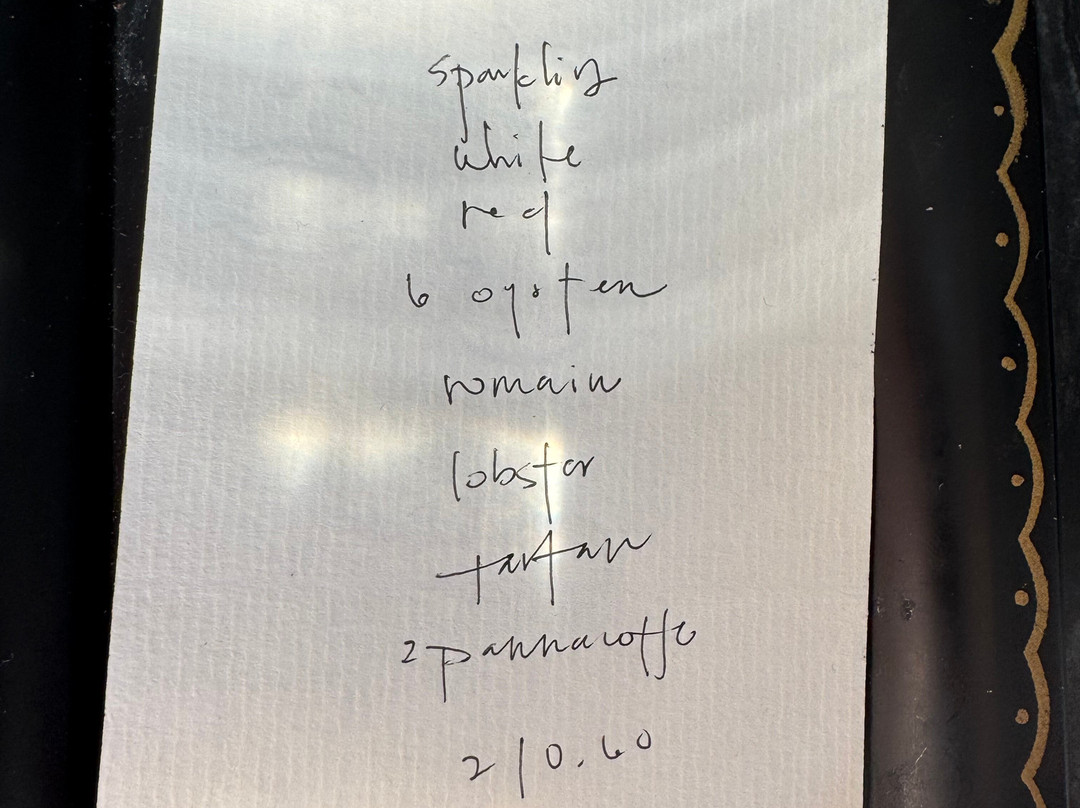 sparkling
white
red
6 oysters
romain
lobster
tartare
2 pannacotta
210.60